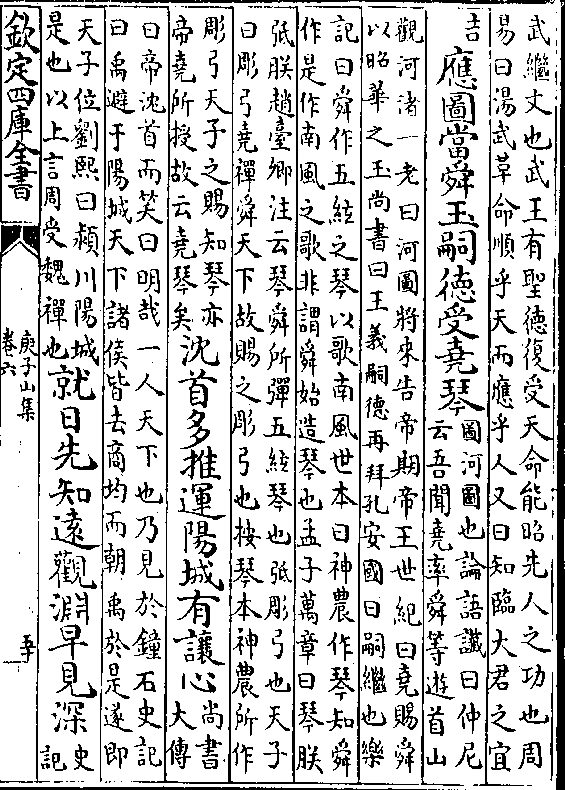 武繼文也武王有聖德復受天命能昭先人之功也周
易曰湯武革命順乎天而應乎人又曰知臨大君之宜
吉
應圖當舜玉嗣德受堯琴
圖河圖也論語讖曰仲尼
云吾聞堯率舜等遊首山
觀河渚一老曰河圖將來告帝期帝王世紀曰堯賜舜
以昭華之玉尚書曰王義嗣德再拜孔安國曰嗣繼也樂
記曰舜作五絃之琴以歌南風世本曰神農作琴知舜
作是作南風之歌非謂舜始造琴也孟子萬章曰琴朕
弤朕趙臺卿注云琴舜所彈五絃琴也弤彫弓也天子
曰彫弓堯禪舜天下故賜之彫弓也按琴本神農所作
彫弓天子之賜知琴亦
帝堯所授故云堯琴矣
沈首多推運陽城有讓心
尚書
大傳
曰帝沈首而笑曰明哉一人天下也乃見於鐘石史記
曰禹避于陽城天下諸侯皆去商均而朝禹於是遂即
天子位劉熙曰潁川陽城
是也以上言周受魏禪也
就日先知遠觀淵早見深
史
記
欽定四庫全書
庾子山集
卷六